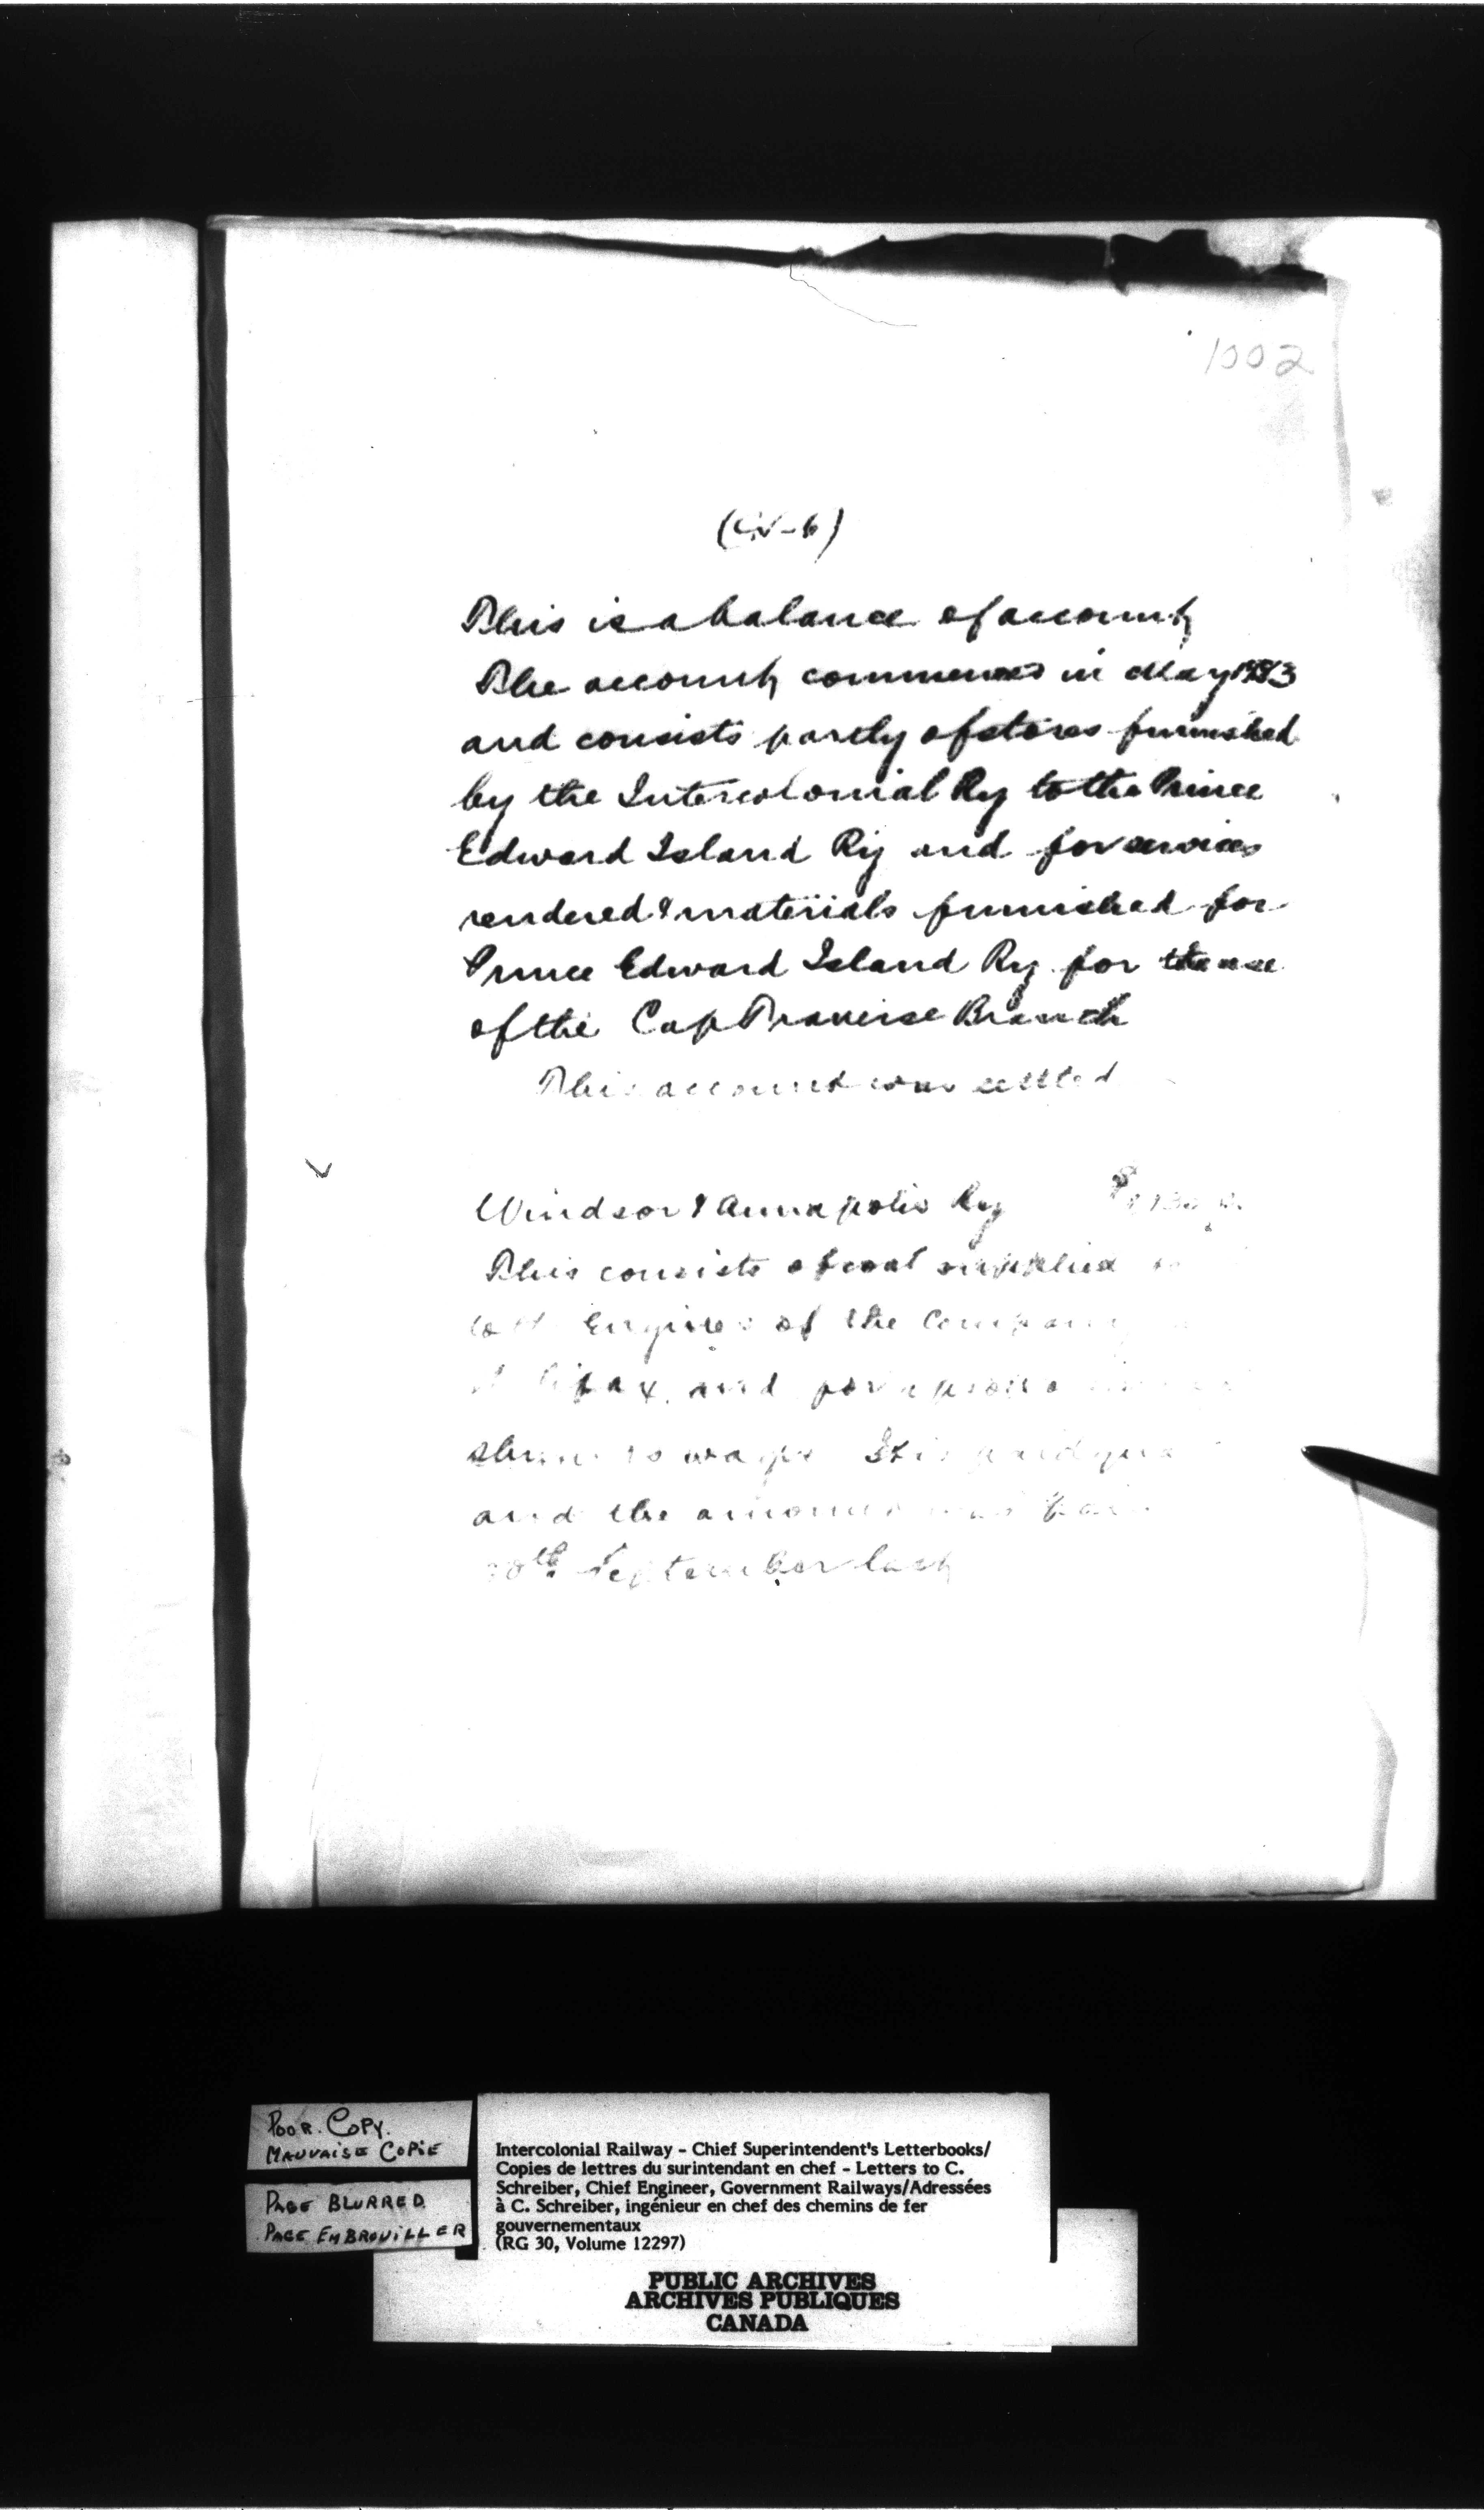 1002
This is a balance of account
The account commences in May 1883
and consists partly of stores furnished
by the Intercolonial Ry to the Prince
Edward Island Ry and for services
rendered & materials furnished for
Prince Edward Island Ry for the use
of the Cap Traverse Branch
This account was settled
Windsor & Annapolis Ry
This consists of coal supplied
Engines of the Company
and for
It is paid
and the amount was
30th September last
POOR. COPY.
MAUVAISE COPIE
PAGE BLURRED
PAGE EMBROUILLER
Intercolonial Railway - Chief Superintendent's Letterbooks/
Copies de lettres du surintendant en chef - Letters to C.
Schreiber, Chief Engineer, Government Railways/Adressées
à C. Schreiber, ingénieur en chef des chemins de fer
gouvernementaux
(RG 30, Volume 12297)
PUBLIC ARCHIVES
ARCHIVES PUBLIQUES
CANADA